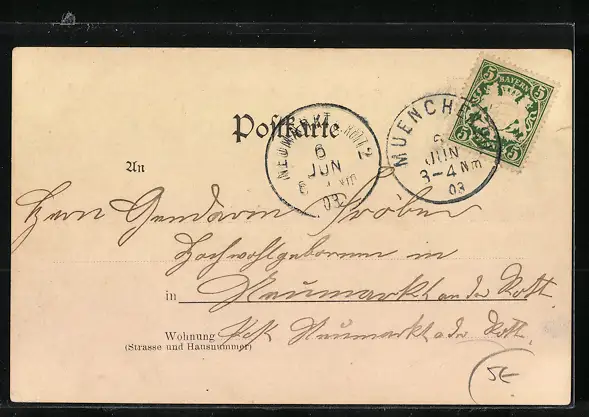 5 BAYERN 5
5 5
MUENCHEN
6
JUN
3-4 Nm
03
Postkarte
NEUMARKT
6
JUN
03
An
Herrn Gendarm
Hochwohlgeboren in
in Neumarkt an der Rott.
Wohnung Post Neumarkt a. d. Rott.
(Strasse und Hausnummer)
5E